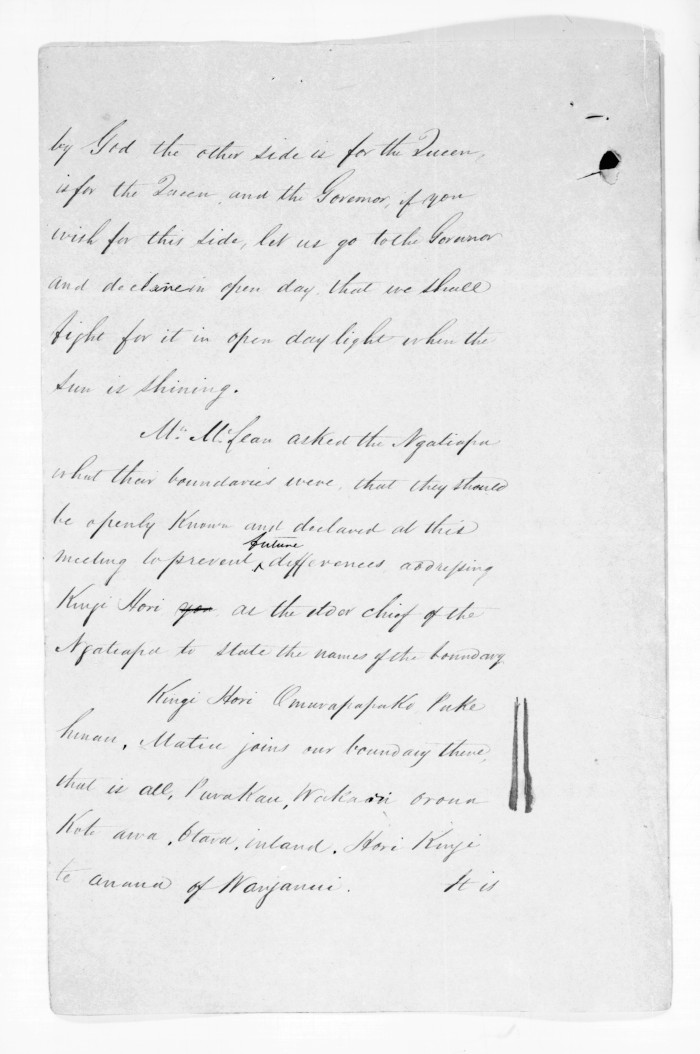 by God the other side is for the Queen,
is for the Queen, and the Governor, if you
wish for this side, let us go to the Governor
and declare in open day that we shall
fight for it in open day light when the
sun is shining.
Mr. McLean asked the Ngatiapa
what their boundaries were that they should
be openly known and declared at this
future
meeting to prevent differences addressing
Kingi Hori as the chief of the
Ngatiapa to state the names of the boundary
Kingi Hori Omurapapako Puke
hinau, Matiu joins our boundary there,
that is all, Purakau, oroua
Kote awa, Otara, inland. Hori Kingi
te anaua of Wanganui. It is